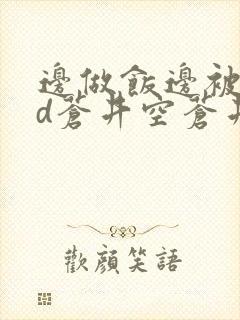 邊做飯邊被
d蒼井空蒼井
歡顏笑語